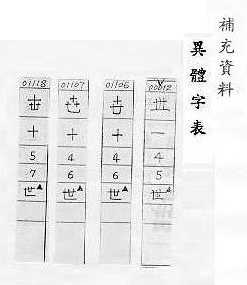 補充資料
異體字表
00012
一
4
5
世▲
01106
十
4
6
世▲
01107
十
4
6
世▲
01118
十
5
7
世▲